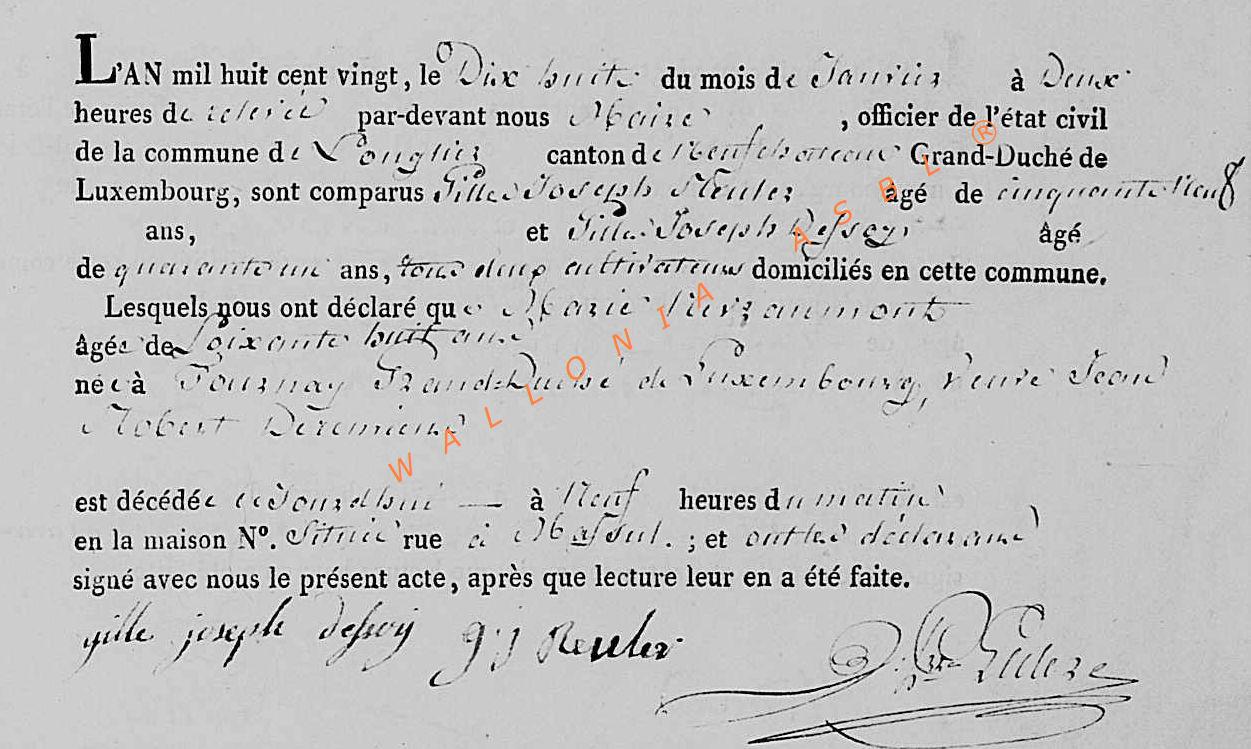 L'AN mil huit cent vingt, le Dix huit du mois de Janvier à Deux
heures de relevée par-devant nous Maire, officier de l'état civil
de la commune de Longlier canton de Neufchateau Grand-Duché de
Luxembourg, sont comparus Gille Joseph Reuler âgé de cinquante Neuf
ans, et Gille Joseph Dessoy âgé
de quarante un ans, tous deux cultivateurs domiciliés en cette commune.
Lesquels nous ont déclaré que Marie
âgée de Soixante huit ans
née à Tournay Grand-Duché de Luxembourg, veuve Jean
Robert
est décédée à Neuf heures du matin
en la maison N°. Située rue à Massul. ; et ont les déclarans
signé avec nous le présent acte, après que lecture leur en a été faite.
gille joseph dessoy g j Reuler
WALLONIA ASBL ®